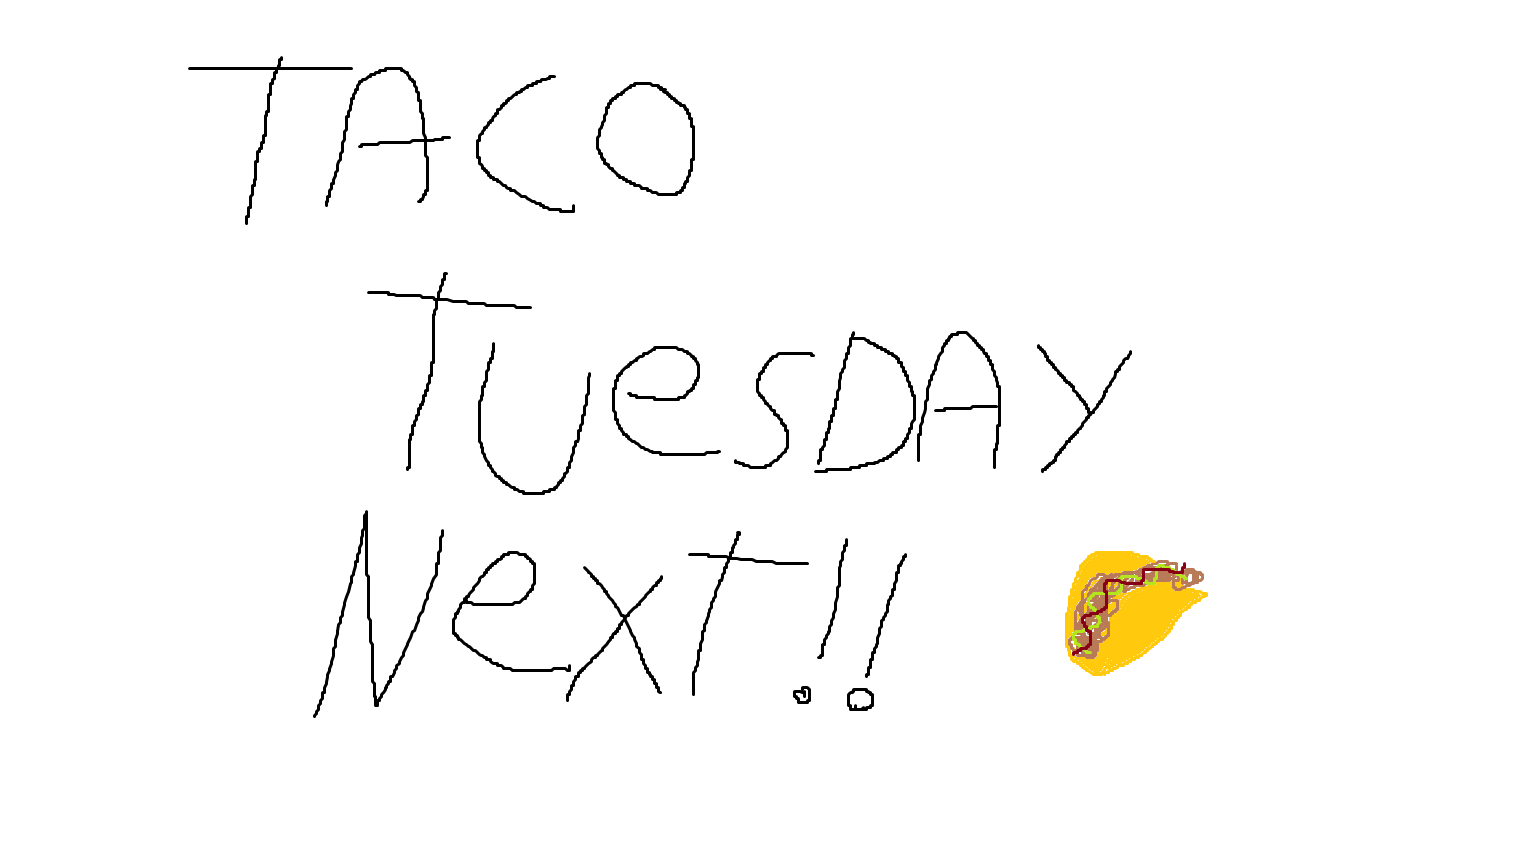 TACO
TUesDAY
NexT!!